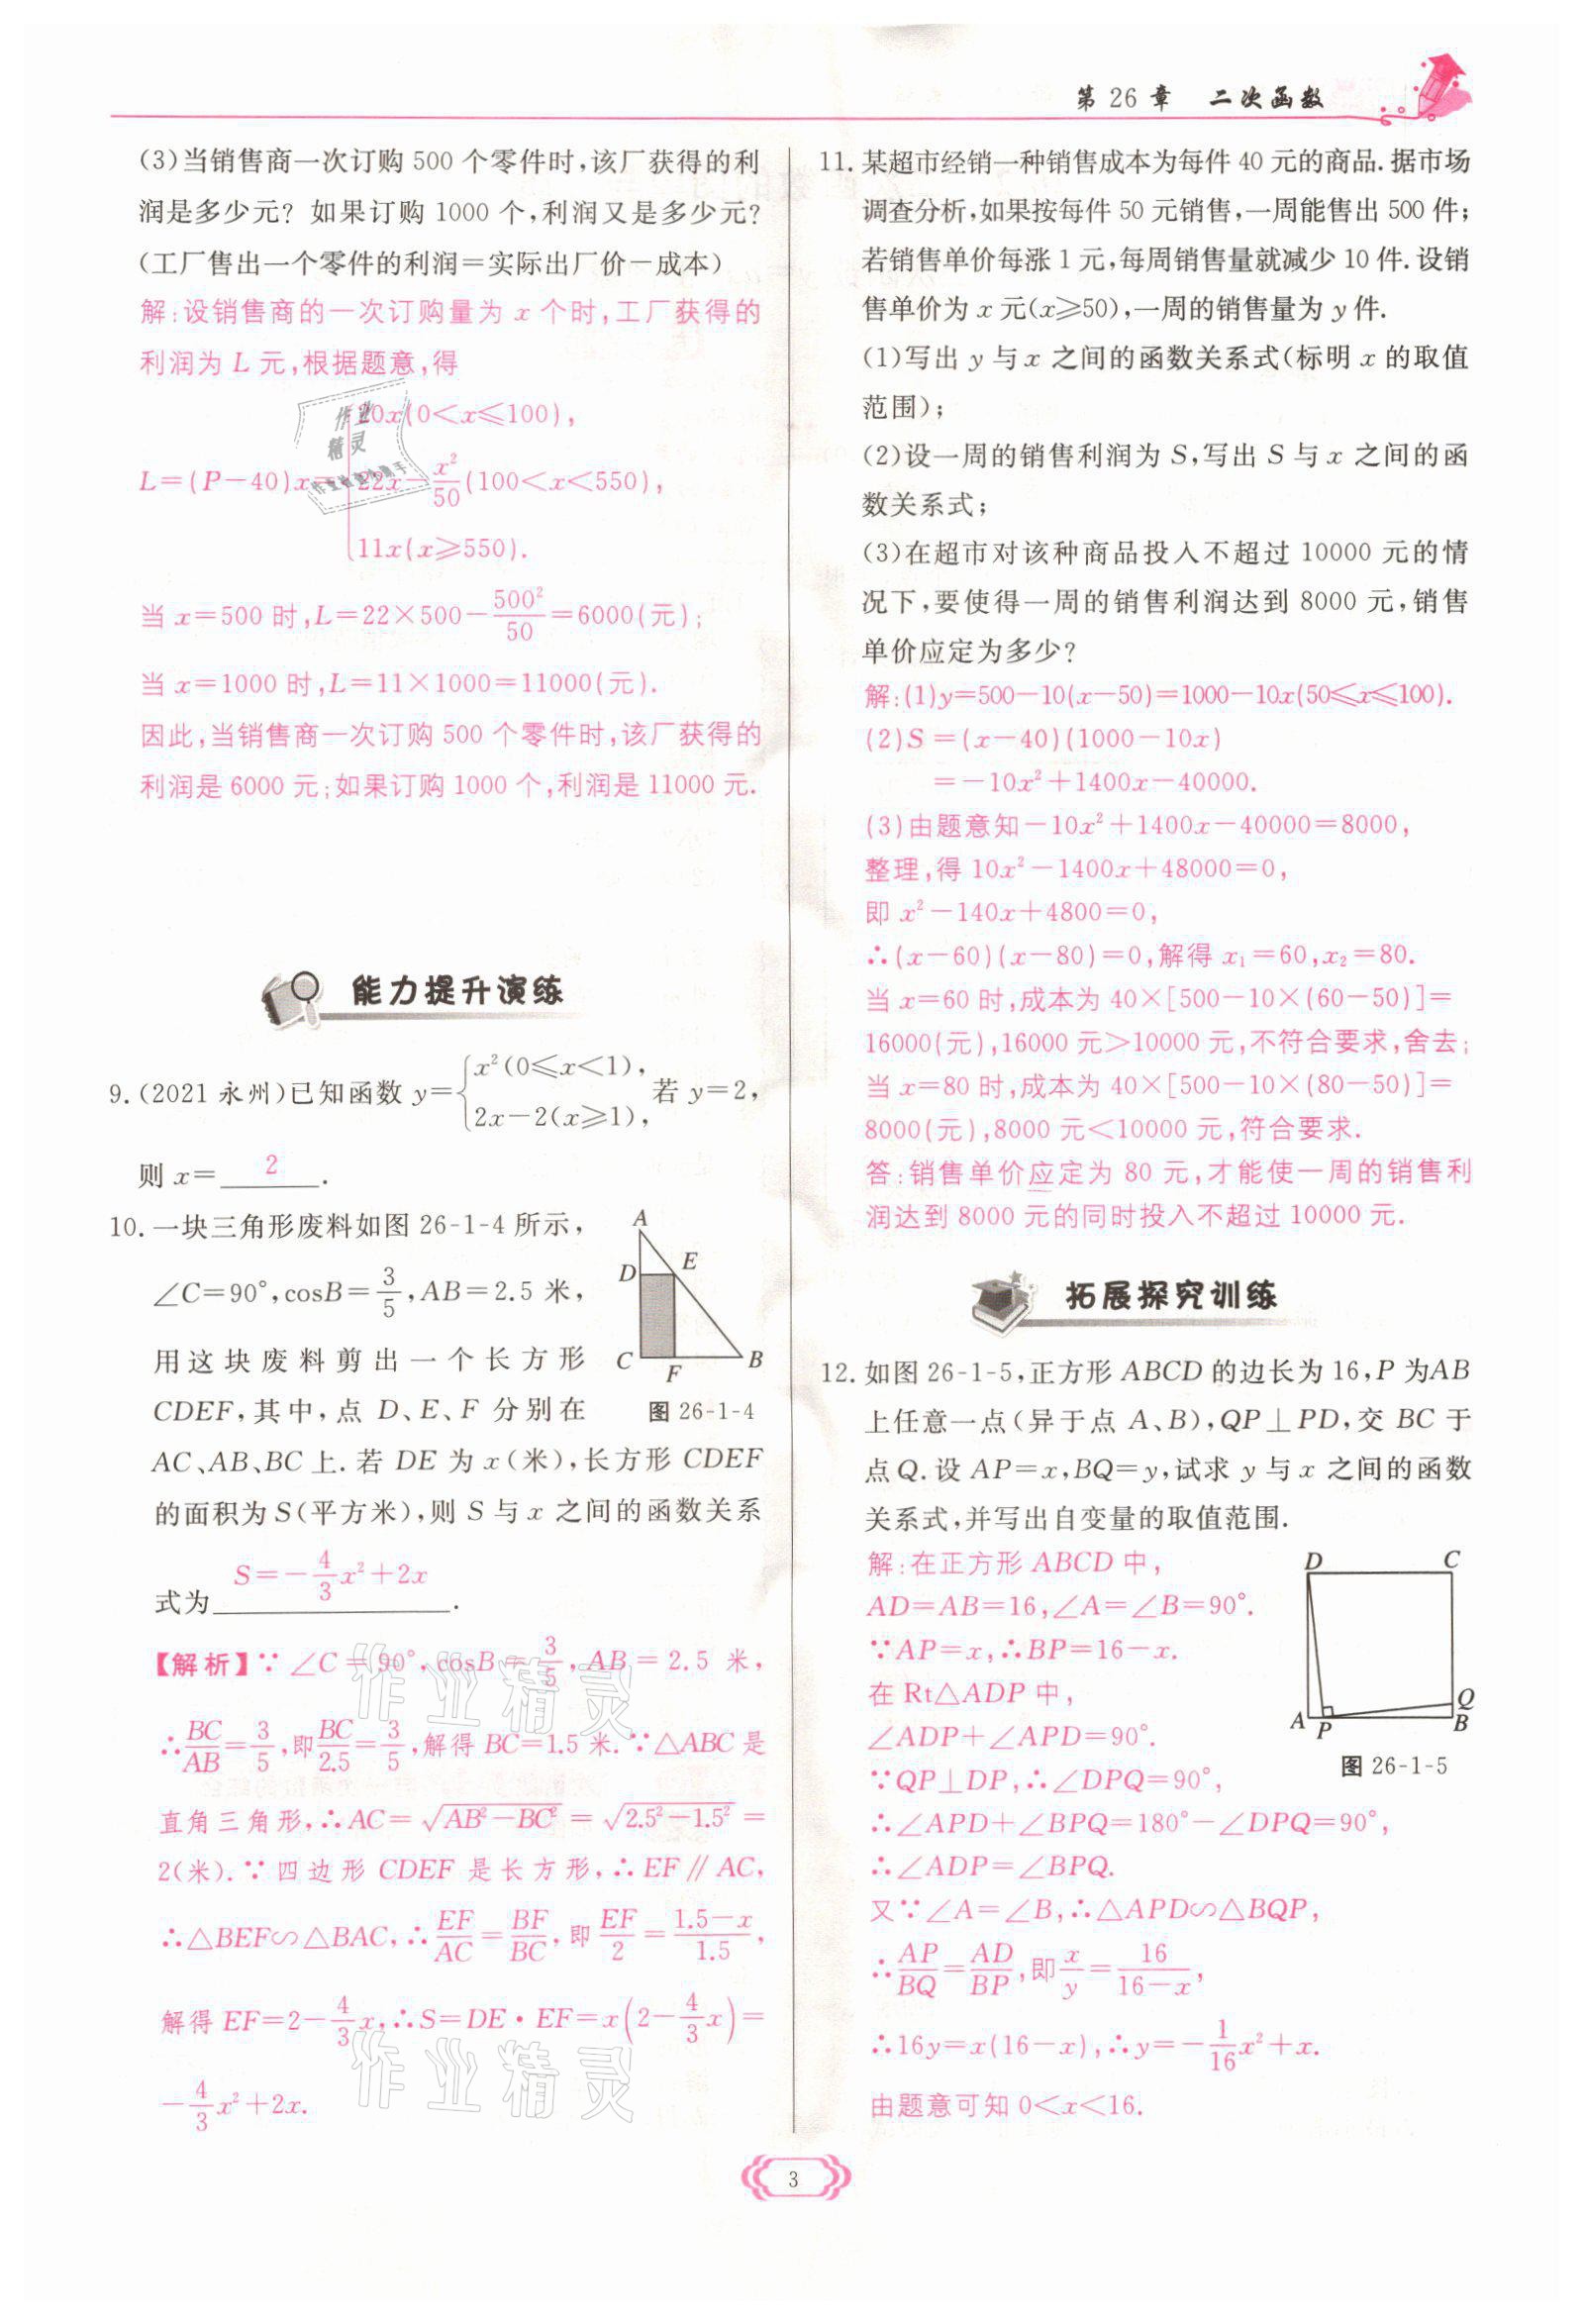 第 26 章 二次函数
(3)当销售商一次订购 500 个零件时,该厂获得的利
润是多少元? 如果订购 1000 个,利润又是多少元?
(工厂售出一个零件的利润=实际出厂价-成本)
解:设销售商的一次订购量为 x 个时,工厂获得的
利润为 L 元,根据题意,得
20x(0<x≤100),
L=(P-40)x= 22x-x²/50(100<x<550),
11x(x≥550).
当 x=500 时,L=22×500-500²/50=6000(元);
当 x=1000 时,L=11×1000=11000(元).
因此,当销售商一次订购 500 个零件时,该厂获得的
利润是 6000 元;如果订购 1000 个,利润是 11000 元.
能力提升演练
9.(2021 永州)已知函数 y={x²(0≤x<1), 2x-2(x≥1), 若 y=2,
则 x= 2 .
10. 一块三角形废料如图 26-1-4 所示,
∠C=90°,cosB=3/5,AB=2.5 米,
用这块废料剪出一个长方形
CDEF,其中,点 D、E、F 分别在
AC、AB、BC 上. 若 DE 为 x(米),长方形 CDEF
的面积为 S(平方米),则 S 与 x 之间的函数关系
式为 S=-4/3x²+2x .
A
D
E
C
F
B
图 26-1-4
【解析】∵∠C=90°,cosB=3/5,AB=2.5 米,
∴BC/AB=3/5,即BC/2.5=3/5,解得 BC=1.5 米.∵△ABC 是
直角三角形,∴AC=√(AB²-BC²)=√(2.5²-1.5²)=
2(米).∵四边形 CDEF 是长方形,∴EF∥AC,
∴△BEF∽△BAC,∴EF/AC=BF/BC,即EF/2=(1.5-x)/1.5,
解得 EF=2-4/3x,∴S=DE·EF=x(2-4/3x)=
-4/3x²+2x.
11. 某超市经销一种销售成本为每件 40 元的商品. 据市场
调查分析,如果按每件 50 元销售,一周能售出 500 件;
若销售单价每涨 1 元,每周销售量就减少 10 件. 设销
售单价为 x 元(x≥50),一周的销售量为 y 件.
(1)写出 y 与 x 之间的函数关系式(标明 x 的取值
范围);
(2)设一周的销售利润为 S,写出 S 与 x 之间的函
数关系式;
(3)在超市对该种商品投入不超过 10000 元的情
况下,要使得一周的销售利润达到 8000 元,销售
单价应定为多少?
解:(1)y=500-10(x-50)=1000-10x(50≤x≤100).
(2)S=(x-40)(1000-10x)
=-10x²+1400x-40000.
(3)由题意知-10x²+1400x-40000=8000,
整理,得 10x²-1400x+48000=0,
即 x²-140x+4800=0,
∴(x-60)(x-80)=0,解得 x₁=60,x₂=80.
当 x=60 时,成本为 40×[500-10×(60-50)]=
16000(元),16000 元>10000 元,不符合要求,舍去;
当 x=80 时,成本为 40×[500-10×(80-50)]=
8000(元),8000 元<10000 元,符合要求.
答:销售单价应定为 80 元,才能使一周的销售利
润达到 8000 元的同时投入不超过 10000 元.
拓展探究训练
12. 如图 26-1-5,正方形 ABCD 的边长为 16,P 为AB
上任意一点(异于点 A、B),QP⊥PD,交 BC 于
点 Q. 设 AP=x,BQ=y,试求 y 与 x 之间的函数
关系式,并写出自变量的取值范围.
解:在正方形 ABCD 中,
AD=AB=16,∠A=∠B=90°.
∵AP=x,∴BP=16-x.
在 Rt△ADP 中,
∠ADP+∠APD=90°.
∵QP⊥DP,∴∠DPQ=90°,
∴∠APD+∠BPQ=180°-∠DPQ=90°,
∴∠ADP=∠BPQ.
又∵∠A=∠B,∴△APD∽△BQP,
∴AP/BQ=AD/BP,即x/y=16/(16-x),
∴16y=x(16-x),∴y=-1/16x²+x.
由题意可知 0<x<16.
D
C
Q
A
P
B
图 26-1-5
作业精灵
作业精灵
作业精灵
3